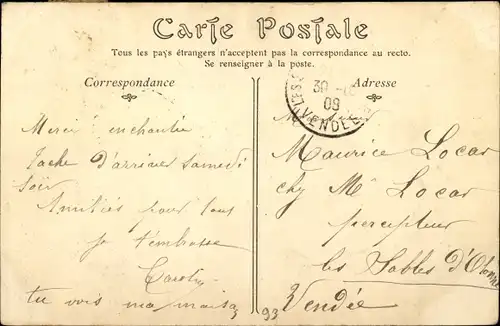 Carte Postale
Tous les pays étrangers n'acceptent pas la correspondance au recto.
Se renseigner à la poste.
Correspondance
Adresse
Merci enchantée
Tache d'arriver samedi
soir
Amitiés pour tous
je t'embrasse
tu vois ma
30
09
VENDÉE
Monsieur
Maurice Locar
chz Mr Locar
percepteur
les Sables d'Olonne
Vendée
93